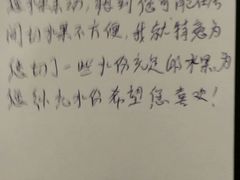 间切水果不方便，我就特意为
您切了一些水份充足的水果，为
您补充水份希望您喜欢！